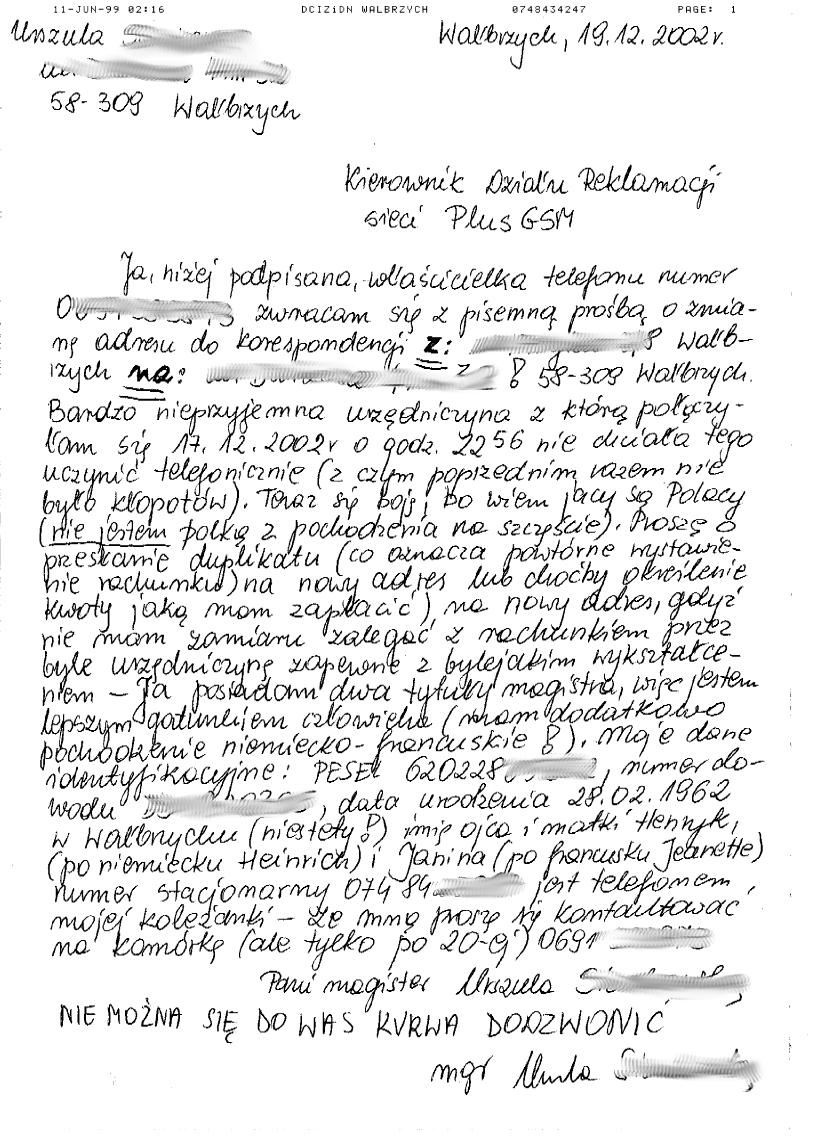 11-JUN-99 02:16 DCIZiDN WALBRZYCH 0748434247 PAGE: 1
Urszula
Wałbrzych, 19.12.2002r.
58-309 Wałbrzych
Kierownik Działu Reklamacji
sieci Plus GSM
Ja, niżej podpisana, właścicielka telefonu numer
0 zwracam się z pisemną prośbą o zmia-
nę adresu do korespondencji z: Wałb-
rzych na: ! 58-309 Wałbrzych.
Bardzo nieprzyjemna urzędniczyna z którą połączy-
łam się 17.12.2002r o godz. 22 56 nie chciała tego
uczynić telefonicznie (z czym poprzednim razem nie
było kłopotów). Teraz się boję, bo wiem jacy są Polacy
(nie jestem polką z pochodzenia na szczęście). Proszę o
przesłanie duplikatu (co oznacza powtórne wystawie-
nie rachunku) na nowy adres lub choćby określenie
kwoty jaką mam zapłacić), na nowy adres, gdyż
nie mam zamiaru zalegać z rachunkiem przez
byle urzędniczynę zapewne z bylejakim wykształce-
niem – Ja posiadam dwa tytuły magistra, więc jestem
lepszym gatunkiem człowieka (mam dodatkowo
pochodzenie niemiecko-francuskie !). Moje dane
identyfikacyjne: PESEL 620228 , numer do-
wodu , data urodzenia 28.02.1962
w Wałbrzychu (niestety!) imię ojca i matki Henryk,
(po niemiecku Heinrich) i Janina (po francusku Jeanette)
numer stacjonarny 074 84 jest telefonem
mojej koleżanki – ze mną proszę się kontaktować
na komórkę (ale tylko po 20-ej) 0691
Pani magister Urszula
NIE MOŻNA SIĘ DO WAS KURWA DODZWONIĆ
mgr Urszula